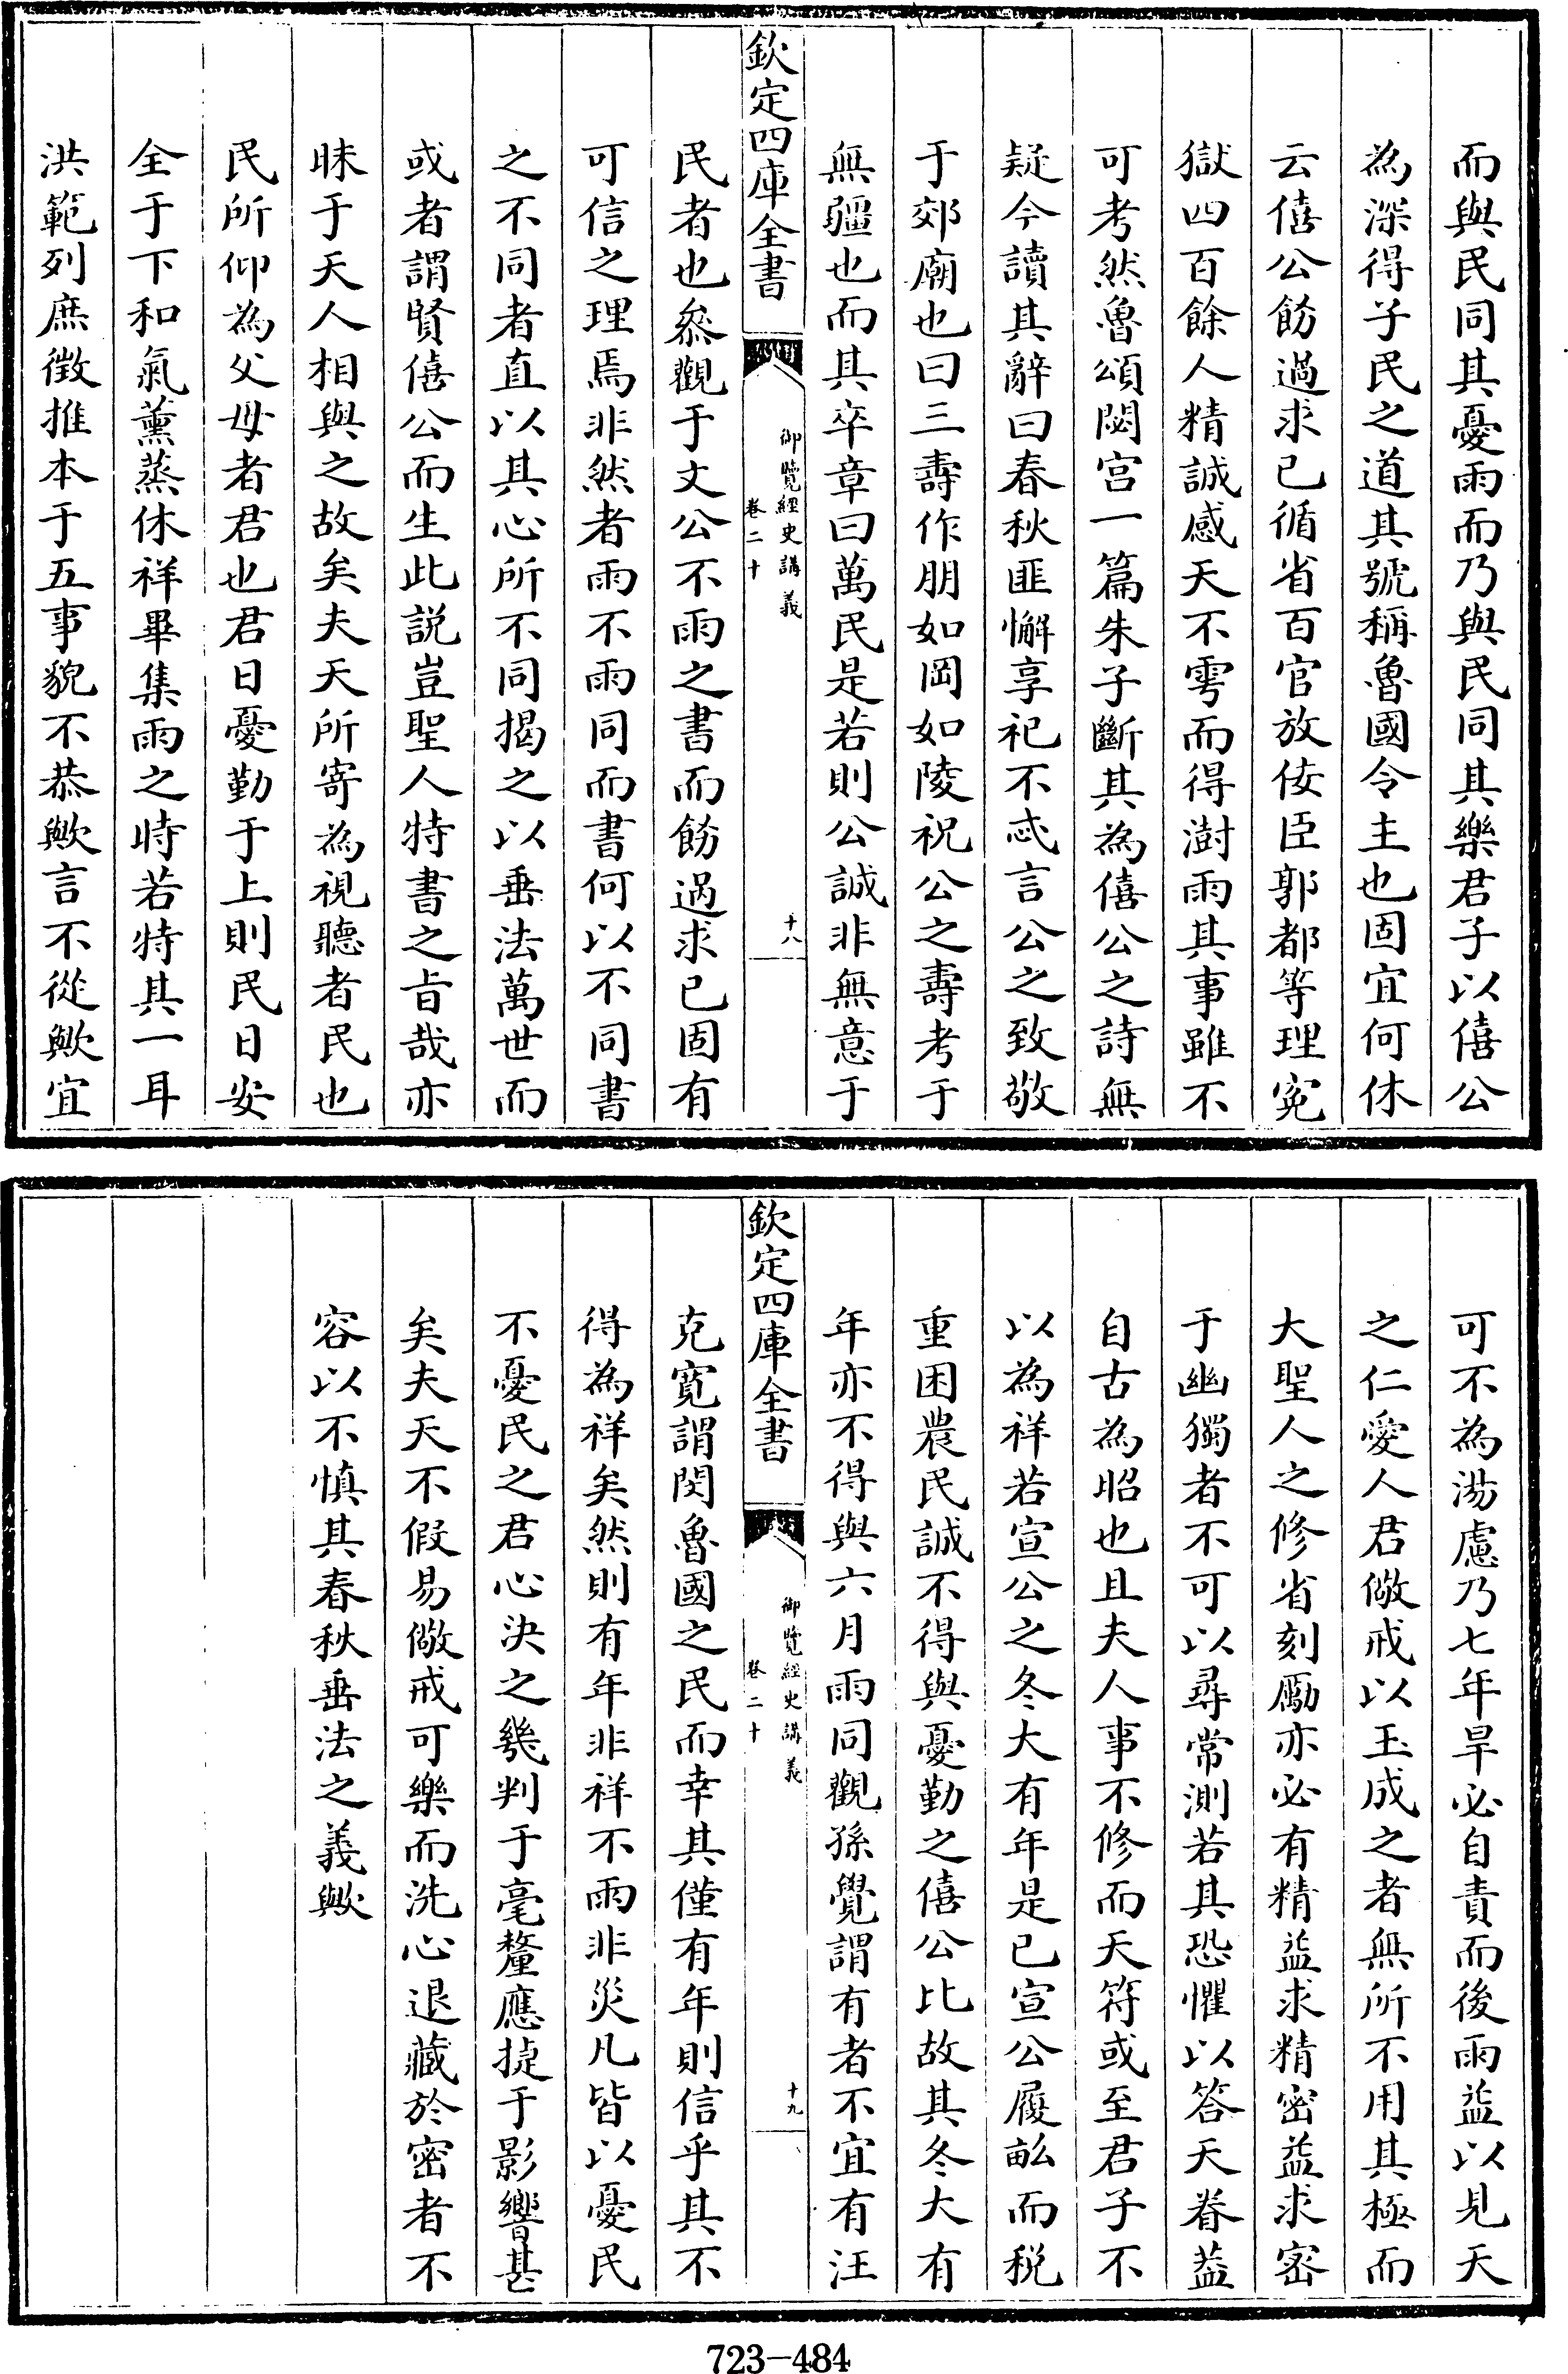 而與民同其憂雨而乃與民同其樂君子以僖公
為深得子民之道其號稱魯國令主也固宜何休
云僖公飭過求己循省百官放佞臣郭都等理寃
獄四百餘人精誠感天不雩而得澍雨其事雖不
可考然魯頌閟宫一篇朱子斷其為僖公之詩無
疑今讀其辭曰春秋匪懈享祀不忒言公之致敬
于郊廟也曰三壽作朋如岡如陵祝公之壽考于
無疆也而其卒章曰萬民是若則公誠非無意于
欽定四庫全書
御覽經史講義
卷二十
十八
民者也叅觀于文公不雨之書而飭過求己固有
可信之理焉非然者雨不雨同而書何以不同書
之不同者直以其心所不同揭之以垂法萬世而
或者謂賢僖公而生此説豈聖人特書之旨哉亦
昧于天人相與之故矣夫天所寄為視聽者民也
民所仰為父母者君也君日憂勤于上則民日安
全于下和氣薰蒸休祥畢集雨之時若特其一耳
洪範列庶徵推本于五事貌不恭歟言不從歟宜
可不為湯慮乃七年旱必自責而後雨益以見天
之仁愛人君儆戒以玉成之者無所不用其極而
大聖人之修省刻勵亦必有精益求精密益求密
于幽獨者不可以尋常測若其恐懼以答天眷葢
自古為昭也且夫人事不修而天符或至君子不
以為祥若宣公之冬大有年是已宣公履畝而税
重困農民誠不得與憂勤之僖公比故其冬大有
年亦不得與六月雨同觀孫覺謂有者不宜有汪
欽定四庫全書
御覽經史講義
卷二十
十九
克寛謂閔魯國之民而幸其僅有年則信乎其不
得為祥矣然則有年非祥不雨非災凡皆以憂民
不憂民之君心決之幾判于毫釐應捷于影響甚
矣夫天不假易儆戒可樂而洗心退藏於密者不
容以不慎其春秋垂法之義歟
723-484